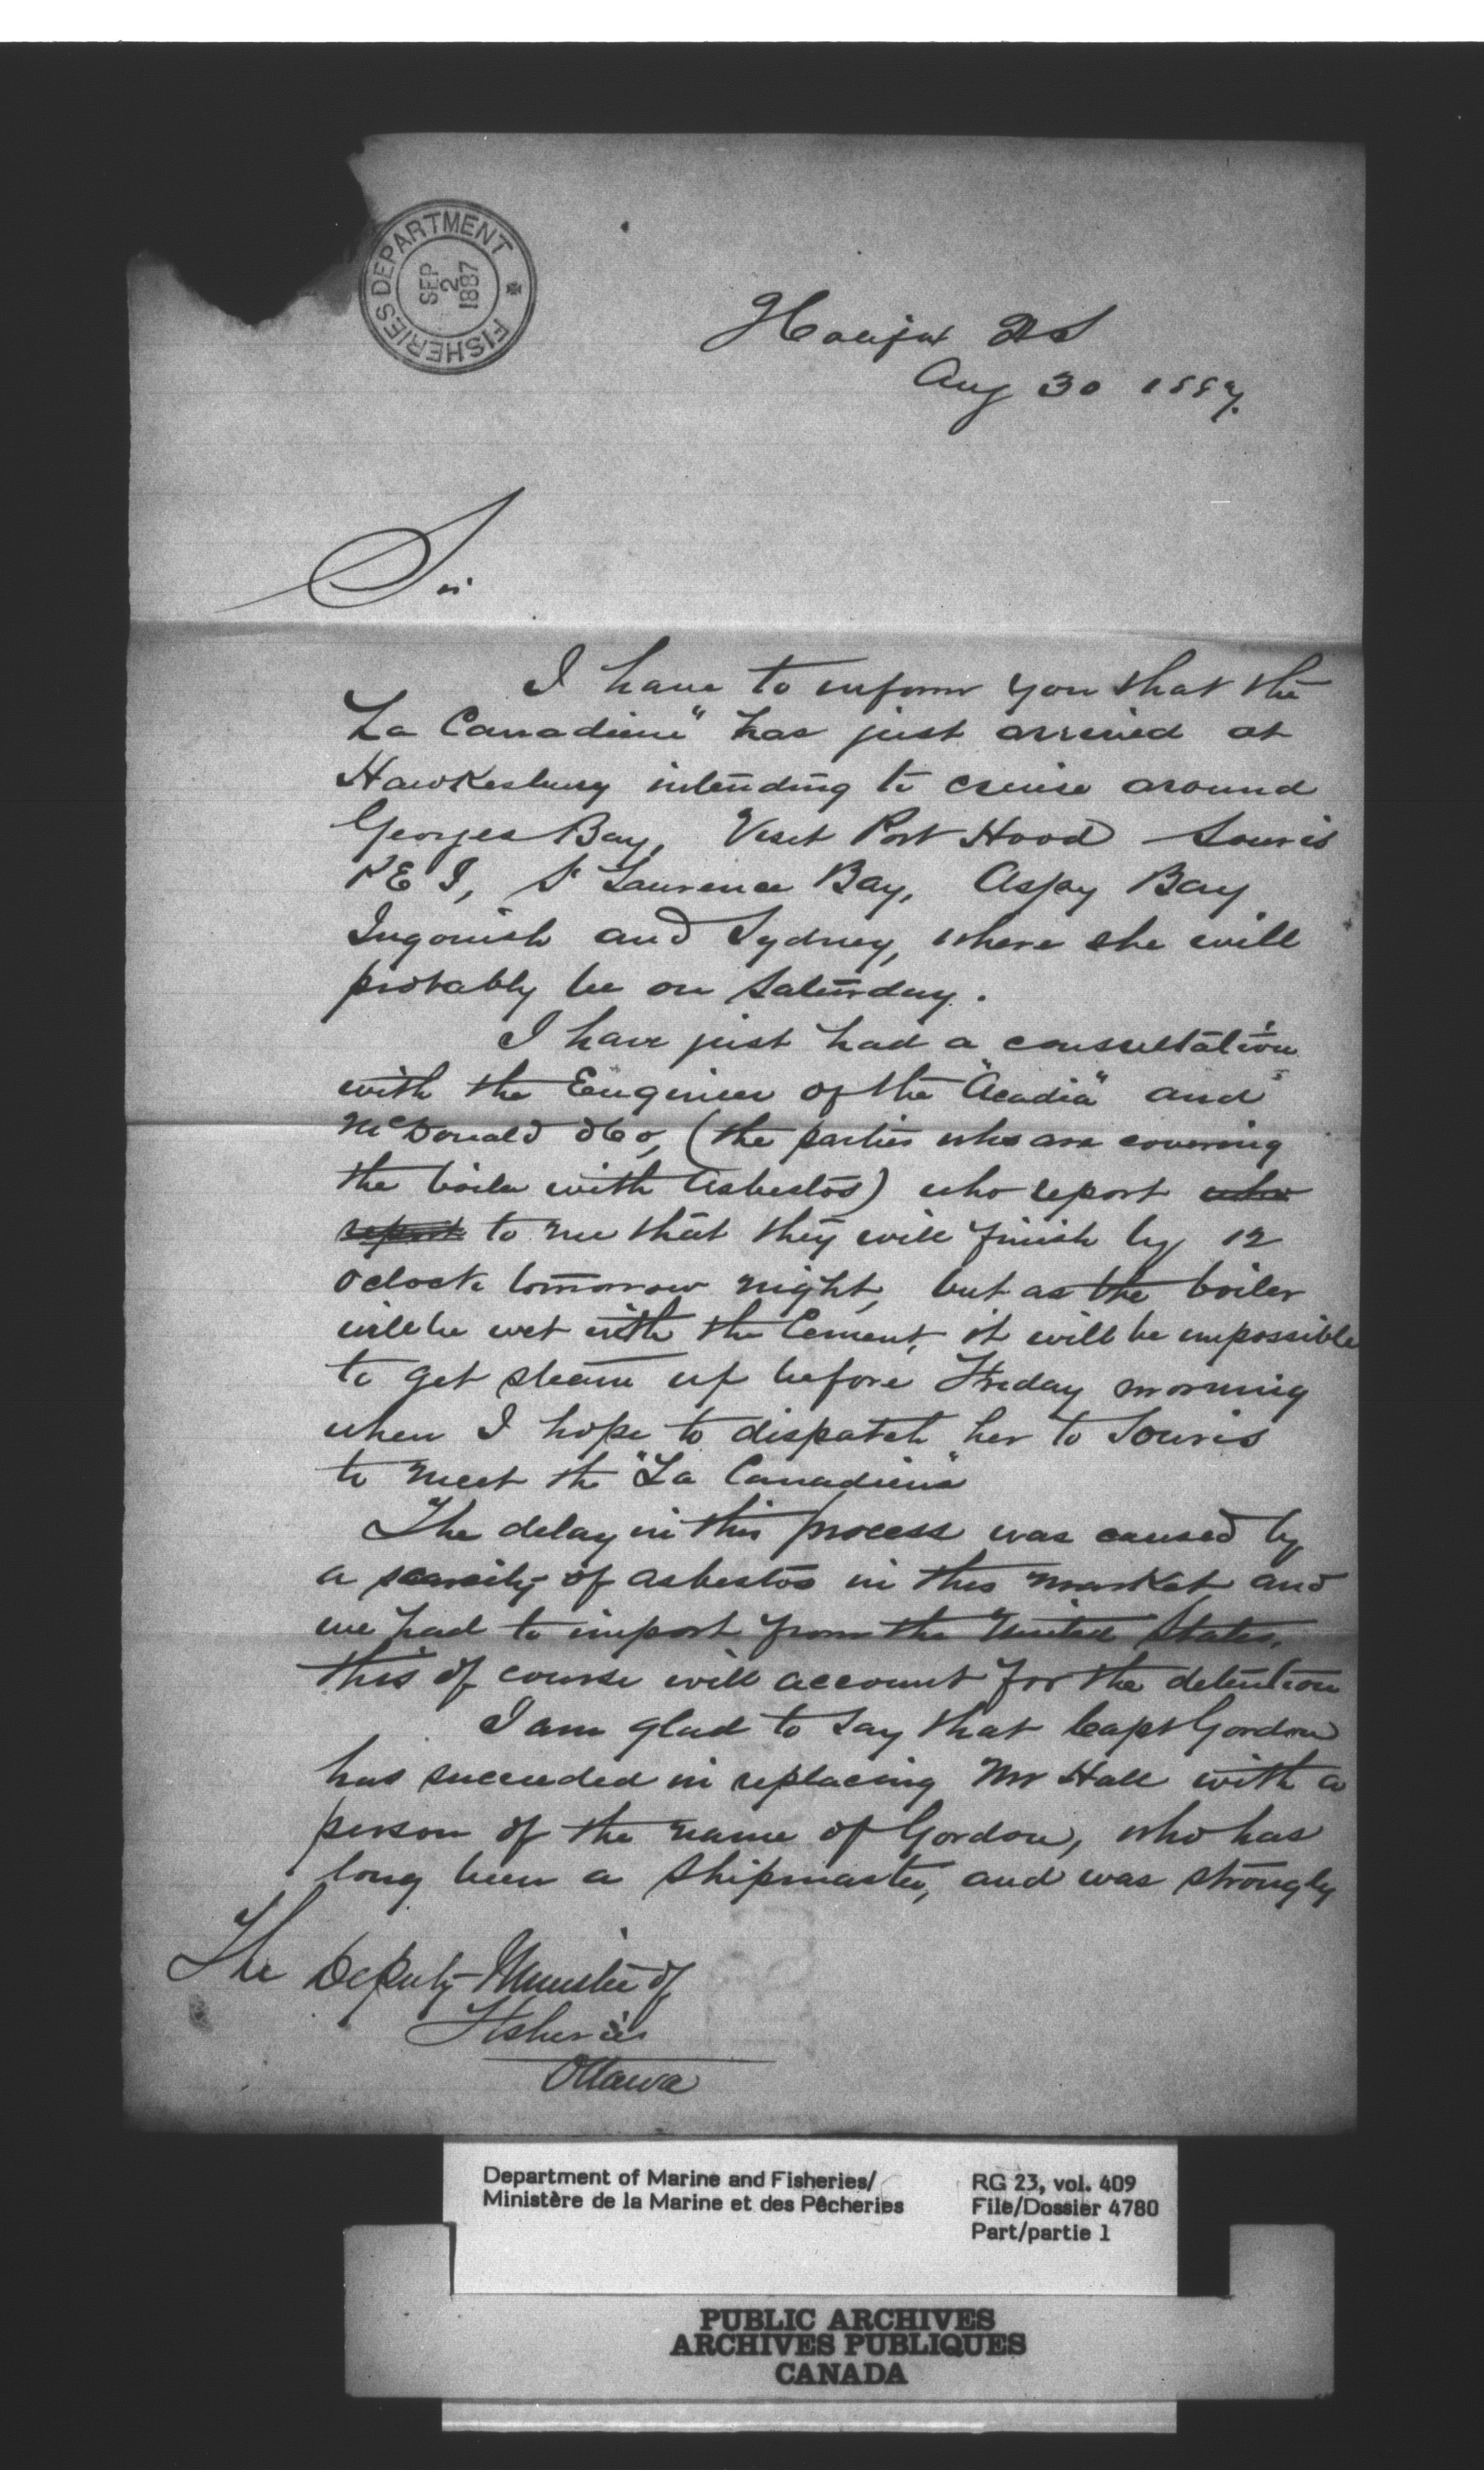 FISHERIES DEPARTMENT
SEP
2
1887
Halifax NS
Aug 30 1887.
Sir
I have to inform you that the
La Canadienne" has just arrived at
Hawkesbury intending to cruise around
Georges Bay, Visit Port Hood Souris
PEI, St Laurence Bay, Aspy Bay
Ingonish and Sydney, where she will
probably be on Saturday.
I have just had a consultation
with the Engineer of the "Acadia" and
McDonald & Co, (the parties who are covering
the boiler with Asbestos) who report who
report to me that they will finish by 12
oclock tomorrow night, but as the boiler
will be wet with the Cement, it will be impossible
to get steam up before Friday morning
when I hope to dispatch her to Souris
to meet the "La Canadienne"
The delay in this process was caused by
a scarcity of asbestos in this market and
we had to import from the United States.
this of course will account for the detention
I am glad to say that Capt Gordon
has succeeded in replacing Mr Hall with a
person of the name of Gordon, who has
long been a Shipmaster, and was strongly
The Deputy Minister of
Fisheries
Ottawa
Department of Marine and Fisheries/
Ministère de la Marine et des Pêcheries
RG 23, vol. 409
File/Dossier 4780
Part/partie 1
PUBLIC ARCHIVES
ARCHIVES PUBLIQUES
CANADA